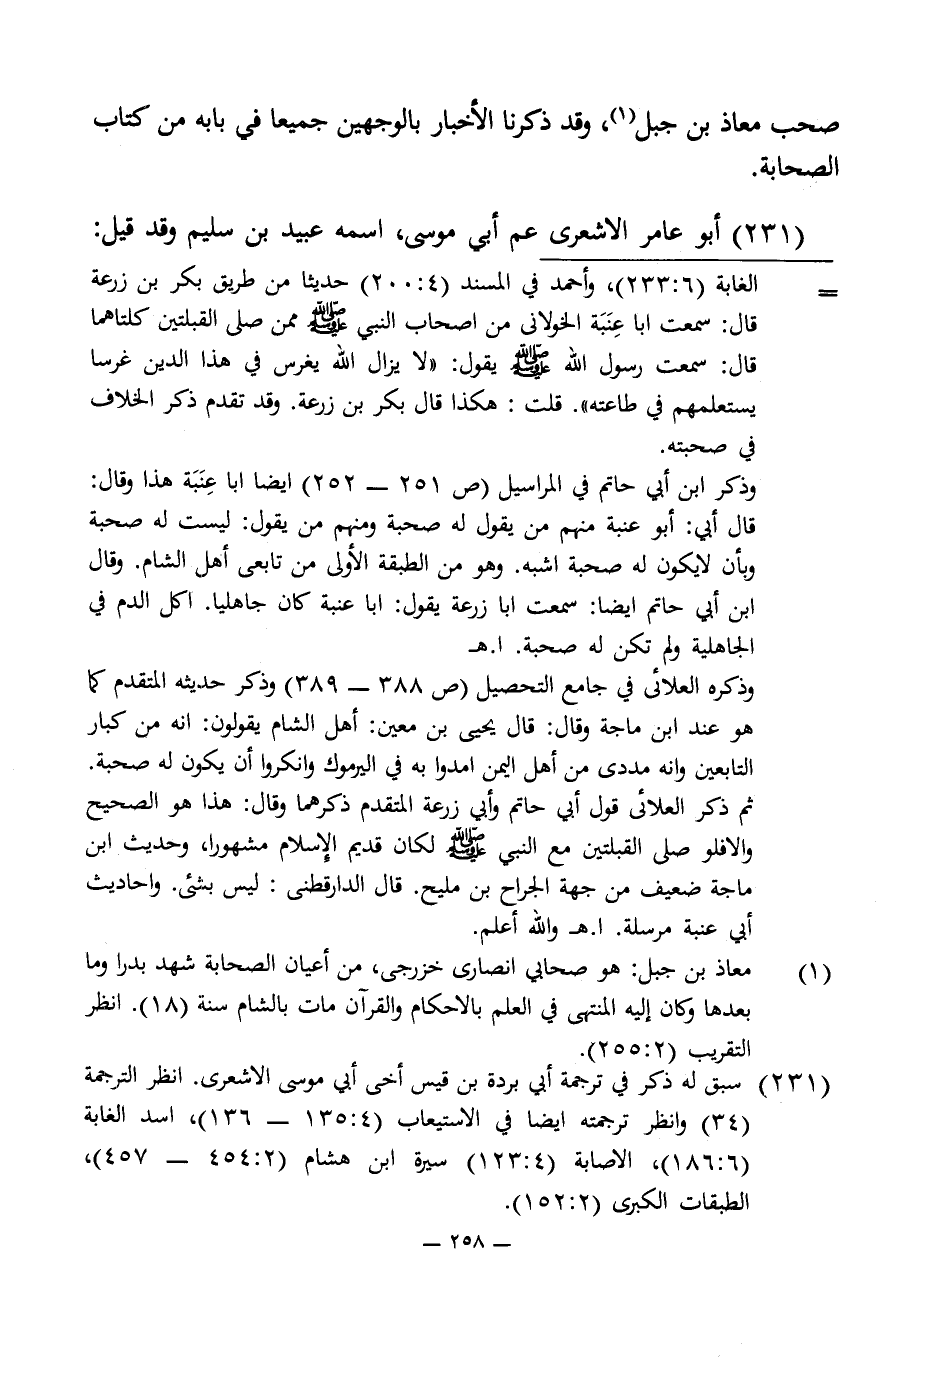 صحب معاذ بن جبل(١)، وقد ذكرنا الأخبار بالوجهين جميعا في بابه من كتاب
الصحابة.
(٢٣١) أبو عامر الاشعرى عم أبي موسى، اسمه عبيد بن سليم وقد قيل:
= الغابة (٢٣٣:٦)، وأحمد في المسند (٢٠٠:٤) حديثا من طريق بكر بن زرعة
قال: سمعت ابا عِنَبَة الخولانى من اصحاب النبي ﷺ ممن صلى القبلتين كلتاهما
قال: سمعت رسول الله ﷺ يقول: «لا يزال الله يغرس في هذا الدين غرسا
يستعلمهم في طاعته». قلت : هكذا قال بكر بن زرعة. وقد تقدم ذكر الخلاف
في صحبته.
وذكر ابن أبي حاتم في المراسيل (ص ٢٥١ — ٢٥٢) ايضا ابا عِنَبَة هذا وقال:
قال أبي: أبو عنبة منهم من يقول له صحبة ومنهم من يقول: ليست له صحبة
وبأن لايكون له صحبة اشبه. وهو من الطبقة الأولى من تابعى أهل الشام. وقال
ابن أبي حاتم ايضا: سمعت ابا زرعة يقول: ابا عنبة كان جاهليا. اكل الدم في
الجاهلية ولم تكن له صحبة. ا.هـ
وذكره العلائى في جامع التحصيل (ص ٣٨٨ — ٣٨٩) وذكر حديثه المتقدم كما
هو عند ابن ماجة وقال: قال يحيى بن معين: أهل الشام يقولون: انه من كبار
التابعين وانه مددى من أهل اليمن امدوا به في اليرموك وانكروا أن يكون له صحبة.
ثم ذكر العلائى قول أبي حاتم وأبي زرعة المتقدم ذكرهما وقال: هذا هو الصحيح
والافلو صلى القبلتين مع النبي ﷺ لكان قديم الإسلام مشهورا، وحديث ابن
ماجة ضعيف من جهة الجراح بن مليح. قال الدارقطنى : ليس بشئ. واحاديث
أبي عنبة مرسلة. ا.هـ والله أعلم.
(١) معاذ بن جبل: هو صحابي انصارى خزرجى، من أعيان الصحابة شهد بدرا وما
بعدها وكان إليه المنتهى في العلم بالاحكام والقرآن مات بالشام سنة (١٨). انظر
التقريب (٢٥٥:٢).
(٢٣١) سبق له ذكر في ترجمة أبي بردة بن قيس أخى أبي موسى الاشعرى. انظر الترجمة
(٣٤) وانظر ترجمته ايضا في الاستيعاب (١٣٥:٤ — ١٣٦)، اسد الغابة
(١٨٦:٦)، الاصابة (١٢٣:٤) سيرة ابن هشام (٤٥٤:٢ — ٤٥٧)،
الطبقات الكبرى (١٥٢:٢).
— ٢٥٨ —